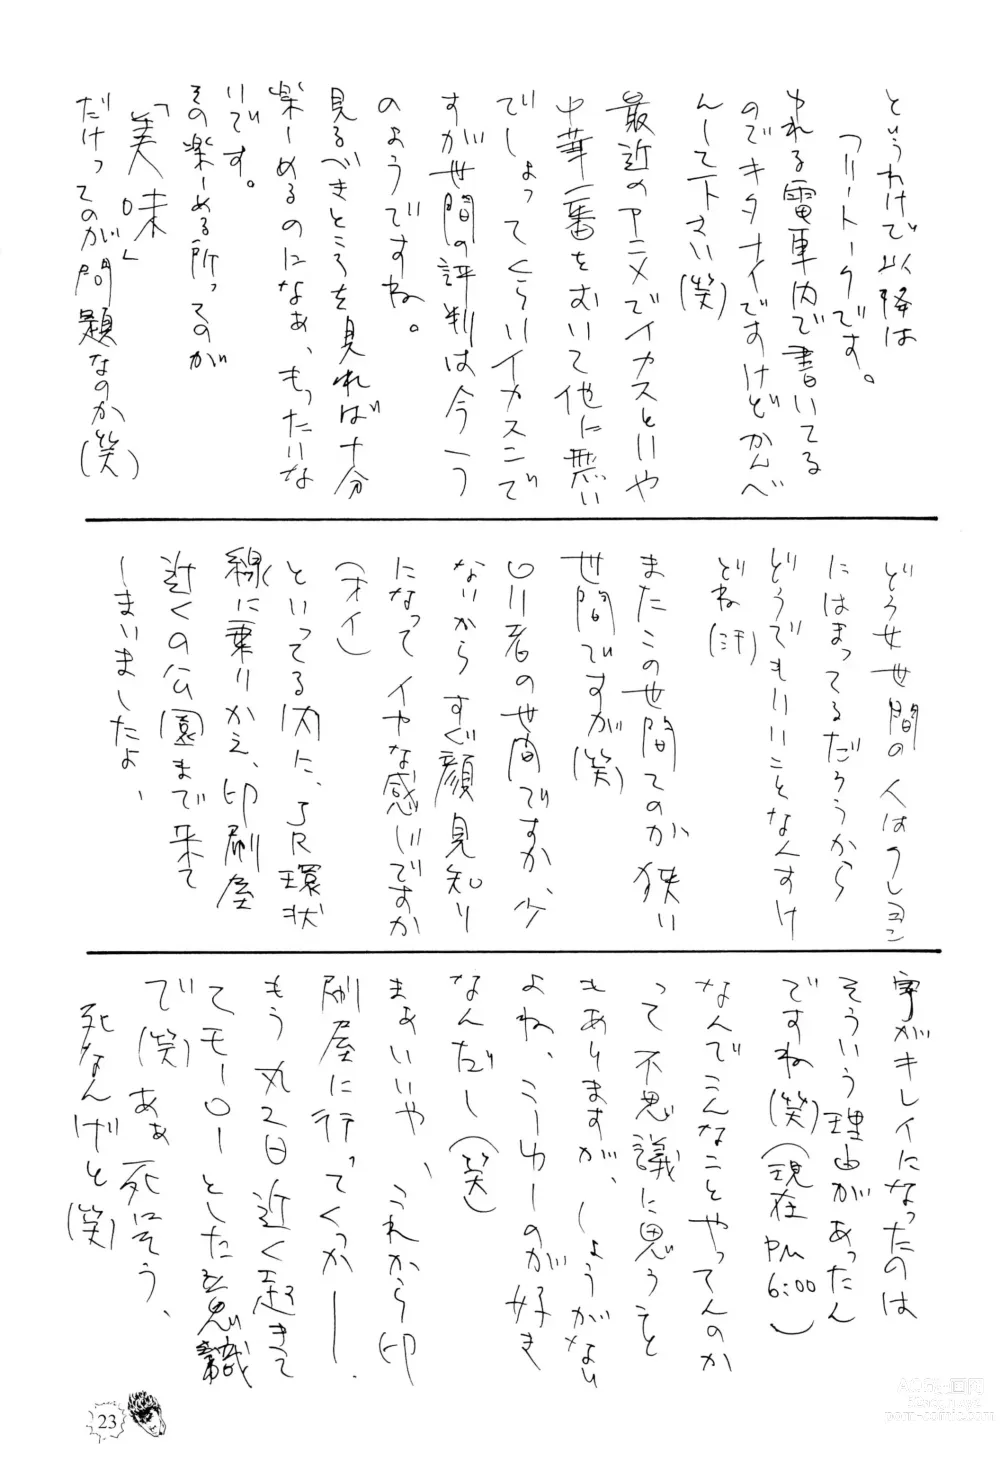 というわけで以降は
フリートークです。
ゆれる電車内で書いてる
のでキタナイですけどかんべ
んして下さい(笑)
最近のアニメでイカスといや
中華一番をおいて他に無い
でしょってくらいイカスンで
すが世間の評判は今一つ
のようですね。
見るべきところを見れば十分
楽しめるのになぁ、もったいな
いです。
その楽しめる所ってのが
「美味」
だけってのが問題なのか(笑)
どうせ世間の人はクレヨン
にはまってるだろうから
どうでもいいことなんすけ
どね(汗)
またこの世間てのが狭い
世間ですが(笑)
ロリ者の世間ですが、少
ないからすぐ顔見知り
になってイヤな感じですか
(オイ)
といってる内に、JR環状
線に乗りかえ、印刷屋
近くの公園まで来て
しまいましたよ、
字がキレイになったのは
そういう理由があったん
ですね(笑)(現在PM6:00)
なんでこんなことやってんのか
って不思議に思うこと
もありますが、しょうがない
よね、こーゆーのが好き
なんだし(笑)
まぁいいや、これから印
刷屋に行ってくっかー。
もう丸2日近く起きて
てモーローとした意識
で(笑)あぁ死にそう、
死なんけど(笑)
23